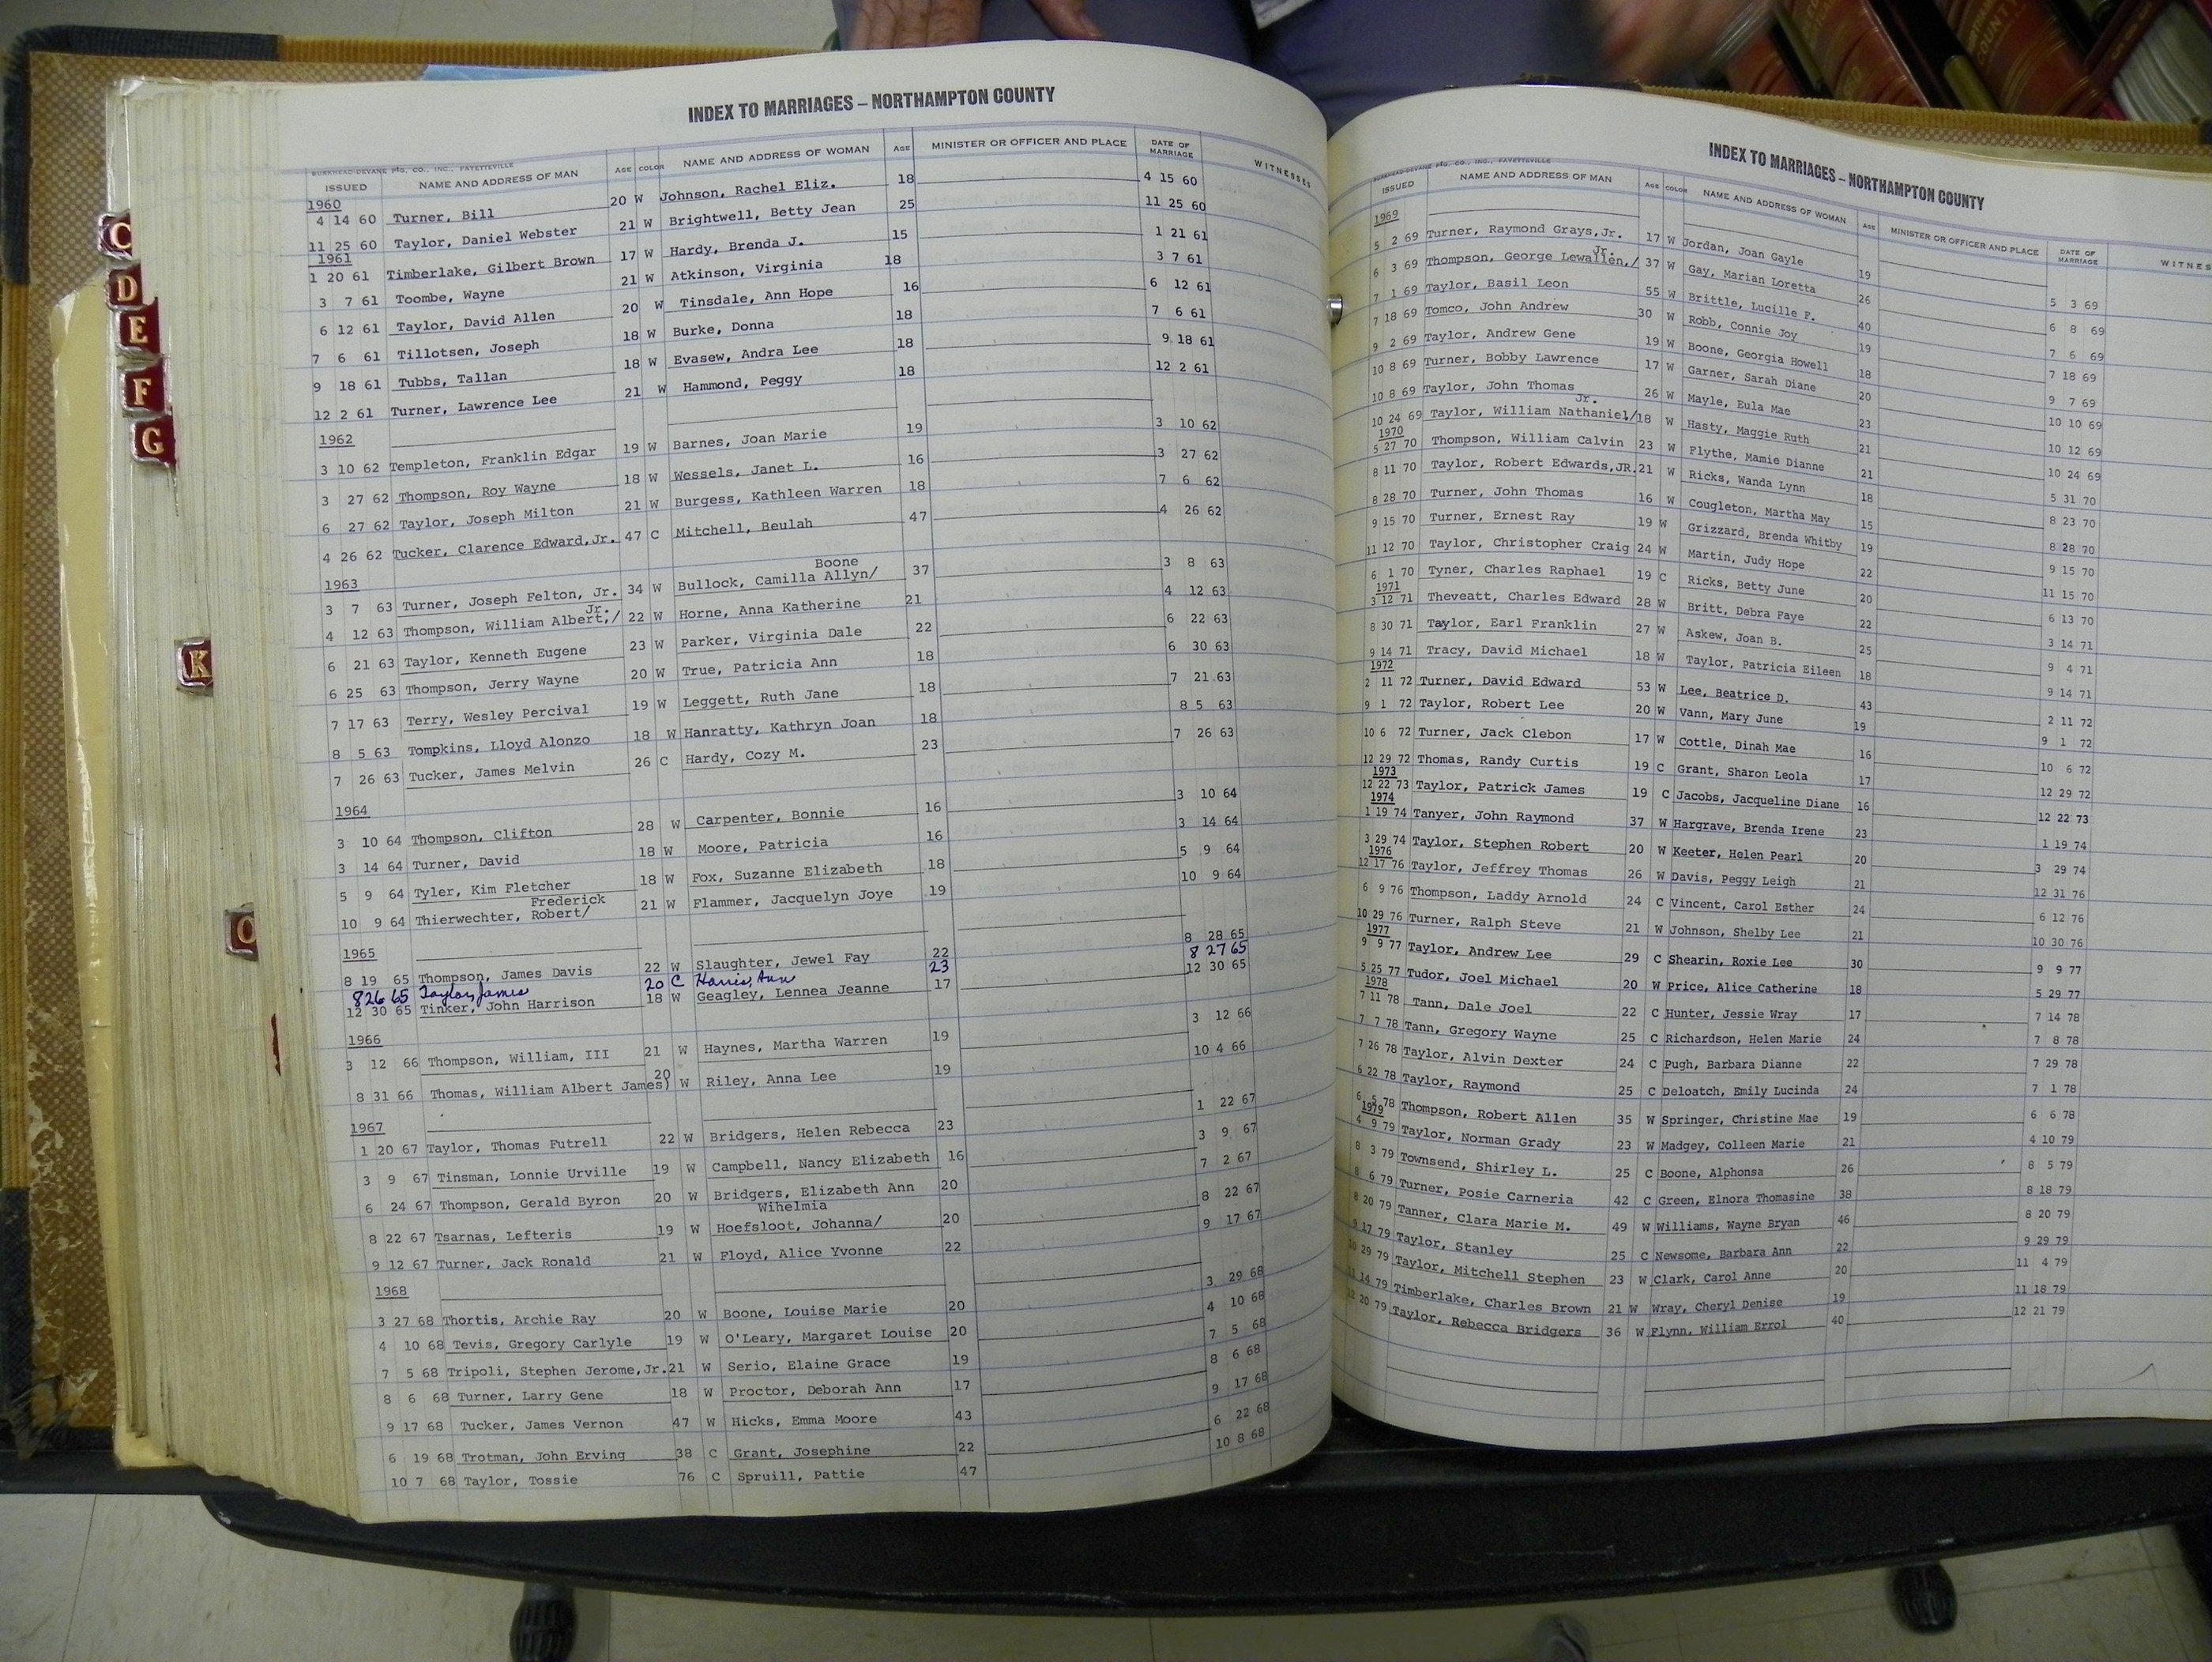 C
D
E
F
G
K
O
INDEX TO MARRIAGES – NORTHAMPTON COUNTY
BURKHEAD-DEVANE PTG. CO., INC., FAYETTEVILLE
ISSUED NAME AND ADDRESS OF MAN AGE COLOR NAME AND ADDRESS OF WOMAN AGE MINISTER OR OFFICER AND PLACE DATE OF MARRIAGE WITNESSES
1960
4 14 60 Turner, Bill 20 W Johnson, Rachel Eliz. 18 4 15 60
11 25 60 Taylor, Daniel Webster 21 W Brightwell, Betty Jean 25 11 25 60
1961
1 20 61 Timberlake, Gilbert Brown 17 W Hardy, Brenda J. 15 1 21 61
3 7 61 Toombe, Wayne 21 W Atkinson, Virginia 18 3 7 61
6 12 61 Taylor, David Allen 20 W Tinsdale, Ann Hope 16 6 12 61
7 6 61 Tillotsen, Joseph 18 W Burke, Donna 18 7 6 61
9 18 61 Tubbs, Tallan 18 W Evasew, Andra Lee 18 9 18 61
12 2 61 Turner, Lawrence Lee 21 W Hammond, Peggy 18 12 2 61
1962
3 10 62 Templeton, Franklin Edgar 19 W Barnes, Joan Marie 19 3 10 62
3 27 62 Thompson, Roy Wayne 18 W Wessels, Janet L. 16 3 27 62
6 27 62 Taylor, Joseph Milton 21 W Burgess, Kathleen Warren 18 7 6 62
4 26 62 Tucker, Clarence Edward,Jr. 47 C Mitchell, Beulah 47 4 26 62
1963
Boone
3 7 63 Turner, Joseph Felton, Jr. 34 W Bullock, Camilla Allyn/ 37 3 8 63
Jr.
4 12 63 Thompson, William Albert,/ 22 W Horne, Anna Katherine 21 4 12 63
6 21 63 Taylor, Kenneth Eugene 23 W Parker, Virginia Dale 22 6 22 63
6 25 63 Thompson, Jerry Wayne 20 W True, Patricia Ann 18 6 30 63
7 17 63 Terry, Wesley Percival 19 W Leggett, Ruth Jane 18 7 21 63
8 5 63 Tompkins, Lloyd Alonzo 18 W Hanratty, Kathryn Joan 18 8 5 63
7 26 63 Tucker, James Melvin 26 C Hardy, Cozy M. 23 7 26 63
1964
3 10 64 Thompson, Clifton 28 W Carpenter, Bonnie 16 3 10 64
3 14 64 Turner, David 18 W Moore, Patricia 16 3 14 64
5 9 64 Tyler, Kim Fletcher 18 W Fox, Suzanne Elizabeth 18 5 9 64
Frederick
10 9 64 Thierwechter, Robert/ 21 W Flammer, Jacquelyn Joye 19 10 9 64
1965
8 19 65 Thompson, James Davis 22 W Slaughter, Jewel Fay 22 8 28 65
8 26 65 Taylor, James 20 C Harris, Ann 23 8 27 65
12 30 65 Tinker, John Harrison 18 W Geagley, Lennea Jeanne 17 12 30 65
1966
3 12 66 Thompson, William, III 21 W Haynes, Martha Warren 19 3 12 66
20
8 31 66 Thomas, William Albert James) W Riley, Anna Lee 19 10 4 66
1967
1 20 67 Taylor, Thomas Futrell 22 W Bridgers, Helen Rebecca 23 1 22 67
3 9 67 Tinsman, Lonnie Urville 19 W Campbell, Nancy Elizabeth 16 3 9 67
6 24 67 Thompson, Gerald Byron 20 W Bridgers, Elizabeth Ann 20 7 2 67
Wihelmia
8 22 67 Tsarnas, Lefteris 19 W Hoefsloot, Johanna/ 20 8 22 67
9 12 67 Turner, Jack Ronald 21 W Floyd, Alice Yvonne 22 9 17 67
1968
3 27 68 Thortis, Archie Ray 20 W Boone, Louise Marie 20 3 29 68
4 10 68 Tevis, Gregory Carlyle 19 W O'Leary, Margaret Louise 20 4 10 68
7 5 68 Tripoli, Stephen Jerome,Jr. 21 W Serio, Elaine Grace 19 7 5 68
8 6 68 Turner, Larry Gene 18 W Proctor, Deborah Ann 17 8 6 68
9 17 68 Tucker, James Vernon 47 W Hicks, Emma Moore 43 9 17 68
6 19 68 Trotman, John Erving 38 C Grant, Josephine 22 6 22 68
10 7 68 Taylor, Tossie 76 C Spruill, Pattie 47 10 8 68
INDEX TO MARRIAGES – NORTHAMPTON COUNTY
BURKHEAD-DEVANE PTG. CO., INC., FAYETTEVILLE
ISSUED NAME AND ADDRESS OF MAN AGE COLOR NAME AND ADDRESS OF WOMAN AGE MINISTER OR OFFICER AND PLACE DATE OF MARRIAGE WITNES
1969
5 2 69 Turner, Raymond Grays,Jr. 17 W Jordan, Joan Gayle 19 5 3 69
Jr.
6 3 69 Thompson, George Lewallen,/ 37 W Gay, Marian Loretta 26 6 8 69
7 1 69 Taylor, Basil Leon 55 W Brittle, Lucille F. 40 7 6 69
7 18 69 Tomco, John Andrew 30 W Robb, Connie Joy 19 7 18 69
9 2 69 Taylor, Andrew Gene 19 W Boone, Georgia Howell 18 9 7 69
10 8 69 Turner, Bobby Lawrence 17 W Garner, Sarah Diane 20 10 10 69
10 8 69 Taylor, John Thomas 26 W Mayle, Eula Mae 23 10 12 69
Jr.
10 24 69 Taylor, William Nathaniel,/ 18 W Hasty, Maggie Ruth 21 10 24 69
1970
5 27 70 Thompson, William Calvin 23 W Flythe, Mamie Dianne 21 5 31 70
8 11 70 Taylor, Robert Edwards,JR. 21 W Ricks, Wanda Lynn 18 8 23 70
8 28 70 Turner, John Thomas 16 W Cougleton, Martha May 15 8 28 70
9 15 70 Turner, Ernest Ray 19 W Grizzard, Brenda Whitby 19 9 15 70
11 12 70 Taylor, Christopher Craig 24 W Martin, Judy Hope 22 11 15 70
6 1 70 Tyner, Charles Raphael 19 C Ricks, Betty June 20 6 13 70
1971
3 12 71 Theveatt, Charles Edward 28 W Britt, Debra Faye 22 3 14 71
8 30 71 Taylor, Earl Franklin 27 W Askew, Joan B. 25 9 4 71
9 14 71 Tracy, David Michael 18 W Taylor, Patricia Eileen 18 9 14 71
1972
2 11 72 Turner, David Edward 53 W Lee, Beatrice D. 43 2 11 72
9 1 72 Taylor, Robert Lee 20 W Vann, Mary June 19 9 1 72
10 6 72 Turner, Jack Clebon 17 W Cottle, Dinah Mae 16 10 6 72
12 29 72 Thomas, Randy Curtis 19 C Grant, Sharon Leola 17 12 29 72
1973
12 22 73 Taylor, Patrick James 19 C Jacobs, Jacqueline Diane 16 12 22 73
1974
1 19 74 Tanyer, John Raymond 37 W Hargrave, Brenda Irene 23 1 19 74
3 29 74 Taylor, Stephen Robert 20 W Keeter, Helen Pearl 20 3 29 74
1976
12 17 76 Taylor, Jeffrey Thomas 26 W Davis, Peggy Leigh 21 12 31 76
6 9 76 Thompson, Laddy Arnold 24 C Vincent, Carol Esther 24 6 12 76
10 29 76 Turner, Ralph Steve 21 W Johnson, Shelby Lee 21 10 30 76
1977
9 9 77 Taylor, Andrew Lee 29 C Shearin, Roxie Lee 30 9 9 77
5 25 77 Tudor, Joel Michael 20 W Price, Alice Catherine 18 5 29 77
1978
7 11 78 Tann, Dale Joel 22 C Hunter, Jessie Wray 17 7 14 78
7 7 78 Tann, Gregory Wayne 25 C Richardson, Helen Marie 24 7 8 78
7 26 78 Taylor, Alvin Dexter 24 C Pugh, Barbara Dianne 22 7 29 78
6 22 78 Taylor, Raymond 25 C Deloatch, Emily Lucinda 24 7 1 78
6 5 78 Thompson, Robert Allen 35 W Springer, Christine Mae 19 6 6 78
1979
4 9 79 Taylor, Norman Grady 23 W Madgey, Colleen Marie 21 4 10 79
8 3 79 Townsend, Shirley L. 25 C Boone, Alphonsa 26 8 5 79
8 6 79 Turner, Posie Carneria 42 C Green, Elnora Thomasine 38 8 18 79
8 20 79 Tanner, Clara Marie M. 49 W Williams, Wayne Bryan 46 8 20 79
9 17 79 Taylor, Stanley 25 C Newsome, Barbara Ann 22 9 29 79
10 29 79 Taylor, Mitchell Stephen 23 W Clark, Carol Anne 20 11 4 79
11 14 79 Timberlake, Charles Brown 21 W Wray, Cheryl Denise 19 11 18 79
12 20 79 Taylor, Rebecca Bridgers 36 W Flynn, William Errol 40 12 21 79
COUNTY